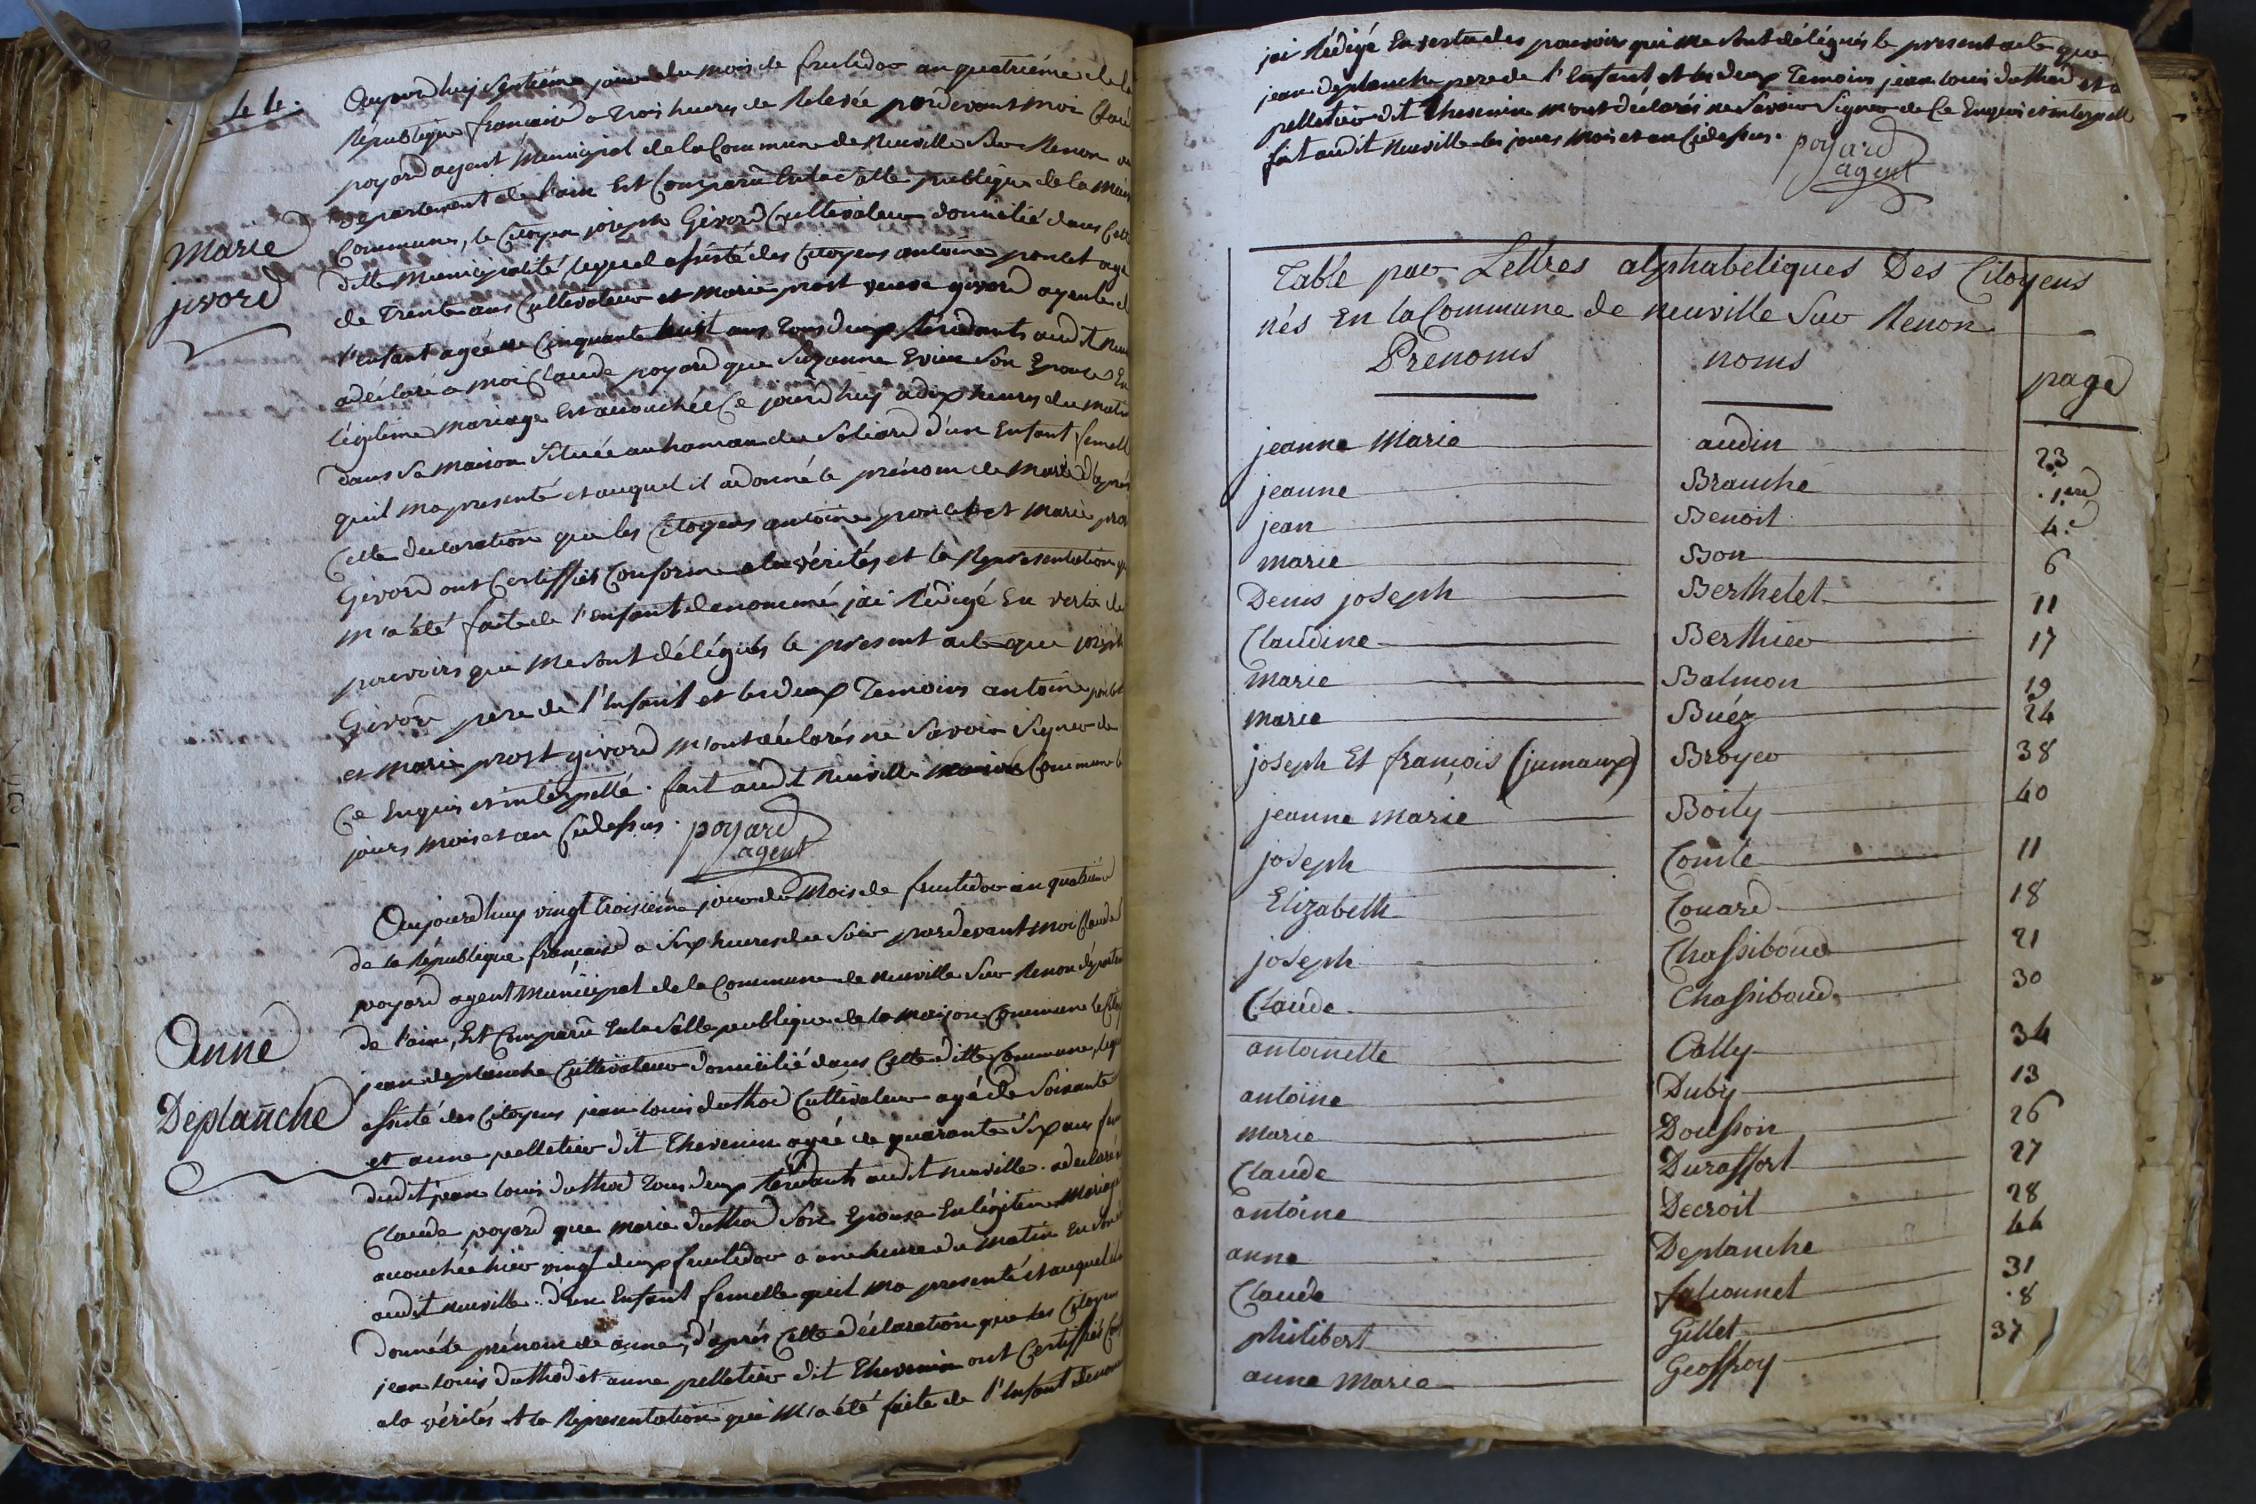 44.
Marie
jivord
Aujourdhuy septième jour du mois de fructidor an quatriéme de la
Republique francaise a trois heures de Relevée pardevant moi Claude
poyard agent Municipal de la Commune de Neuville Sur Renon
Departement de l'ain Est Comparu En la Salle publique de la Maison
Commune, le Citoyen joseph Givord Cultivateur domicilié dans Cette
ditte Municipalité lequel assisté des Citoyens antoine poncet agé
de Trente ans Cultivateur et Marie prost veuve givord ayeule de
l'enfant agée de Cinquante huit ans Tous deux Résidants audit Neuville
a déclaré a moi Claude poyard que Suzanne Son Epouse En
légitime Mariage Est accouchée Ce jourd'huy a dix heures du matin
dans Sa maison Située au hamau du Soliard d'un Enfant femelle
quil ma presenté et auquel il a donné le prénom de Marie d'après
Cette declaration que les Citoyens antoine poncet et Marie prost
Givord ont Certiffiés Conforme a la vérités et la Representation qui
m'a été faite de l'enfant denommé jai Rédigé En vertu des
pouvoirs qui me sont délégués le present acte que joseph
Givord pere de l'Enfant et les deux Temoins antoine poncet
et Marie prost givord m'ont déclarés ne Savoir Signer de
Ce Enquis et interpellé. fait audit Neuville maison Commune les
jours Mois et an Cidessus. poyard
agent
Anne
Deplanche
Aujourdhuy vingt troisiéme jour du Mois de fructidor an quatriéme
de la République francaise a Six heures du Soir pardevant moi Claude
poyard agent Municipal de la Commune de Neuville Sur Renon départem
de l'ain, Est Comparu En la Salle publique de la Maison Commune le Citoy
jean deplanche Cultivateur domicilié dans Cette ditte Commune, lequel
assisté des Citoyens jean louis duthod Cultivateur agé de Soixante
et anne pelletier dit Thevenin agée de quarante Six ans
dudit jean louis duthod Tous deux Résidants audit Neuville. a declaré
Claude poyard que marie duthod Son Epouse En légitime Mariage
accouchée hier vingt deux fructidor a une heure du matin En Son
audit Neuville. d'un Enfant femelle quil ma presenté et auquel il a
donné le prénom de anne, d'après Cette déclaration que les Citoyens
jean louis duthod et anne pelletier dit Thevenin ont Certiffiés Conf
a la vérités et la Representation qui M'a été faite de l'Enfant Denom
jai Rédigé En vertu des pouvoirs qui me sont délégués le present acte que
jean deplanche pere de l'Enfant et les deux Temoins jean louis duthod et
pelletier dit Thevenin m'ont déclarés ne Savoir Signer de Ce Enquis et interpellé
fait audit Neuville les jours Mois et an Cidessus. poyard
agent
Table par Lettres alphabetiques Des Citoyens
nés En la Commune de Neuville Sur Renon
Prenoms noms page
jeanne Marie audin 23
jeanne Branche 1ere
jean Benoit 4.
marie Bon 6
Denis joseph Berthelet 11
Claudine Berthier 17
marie Balmon 19
marie Buéz 24
joseph Et francois (jumaux) Broyer 38
jeanne marie Boity 40
joseph Comte 11
Elizabeth Couard 18
joseph Chassiboud 21
Claude Chassiboud 30
antoinette Cally 34
antoine Duby 13
marie Dousson 26
Claude Duraffort 27
antoine Decroit 28
anne Deplanche 44
Claude falconnet 31
philibert Gillet 8
anne Marie Geoffroy 37